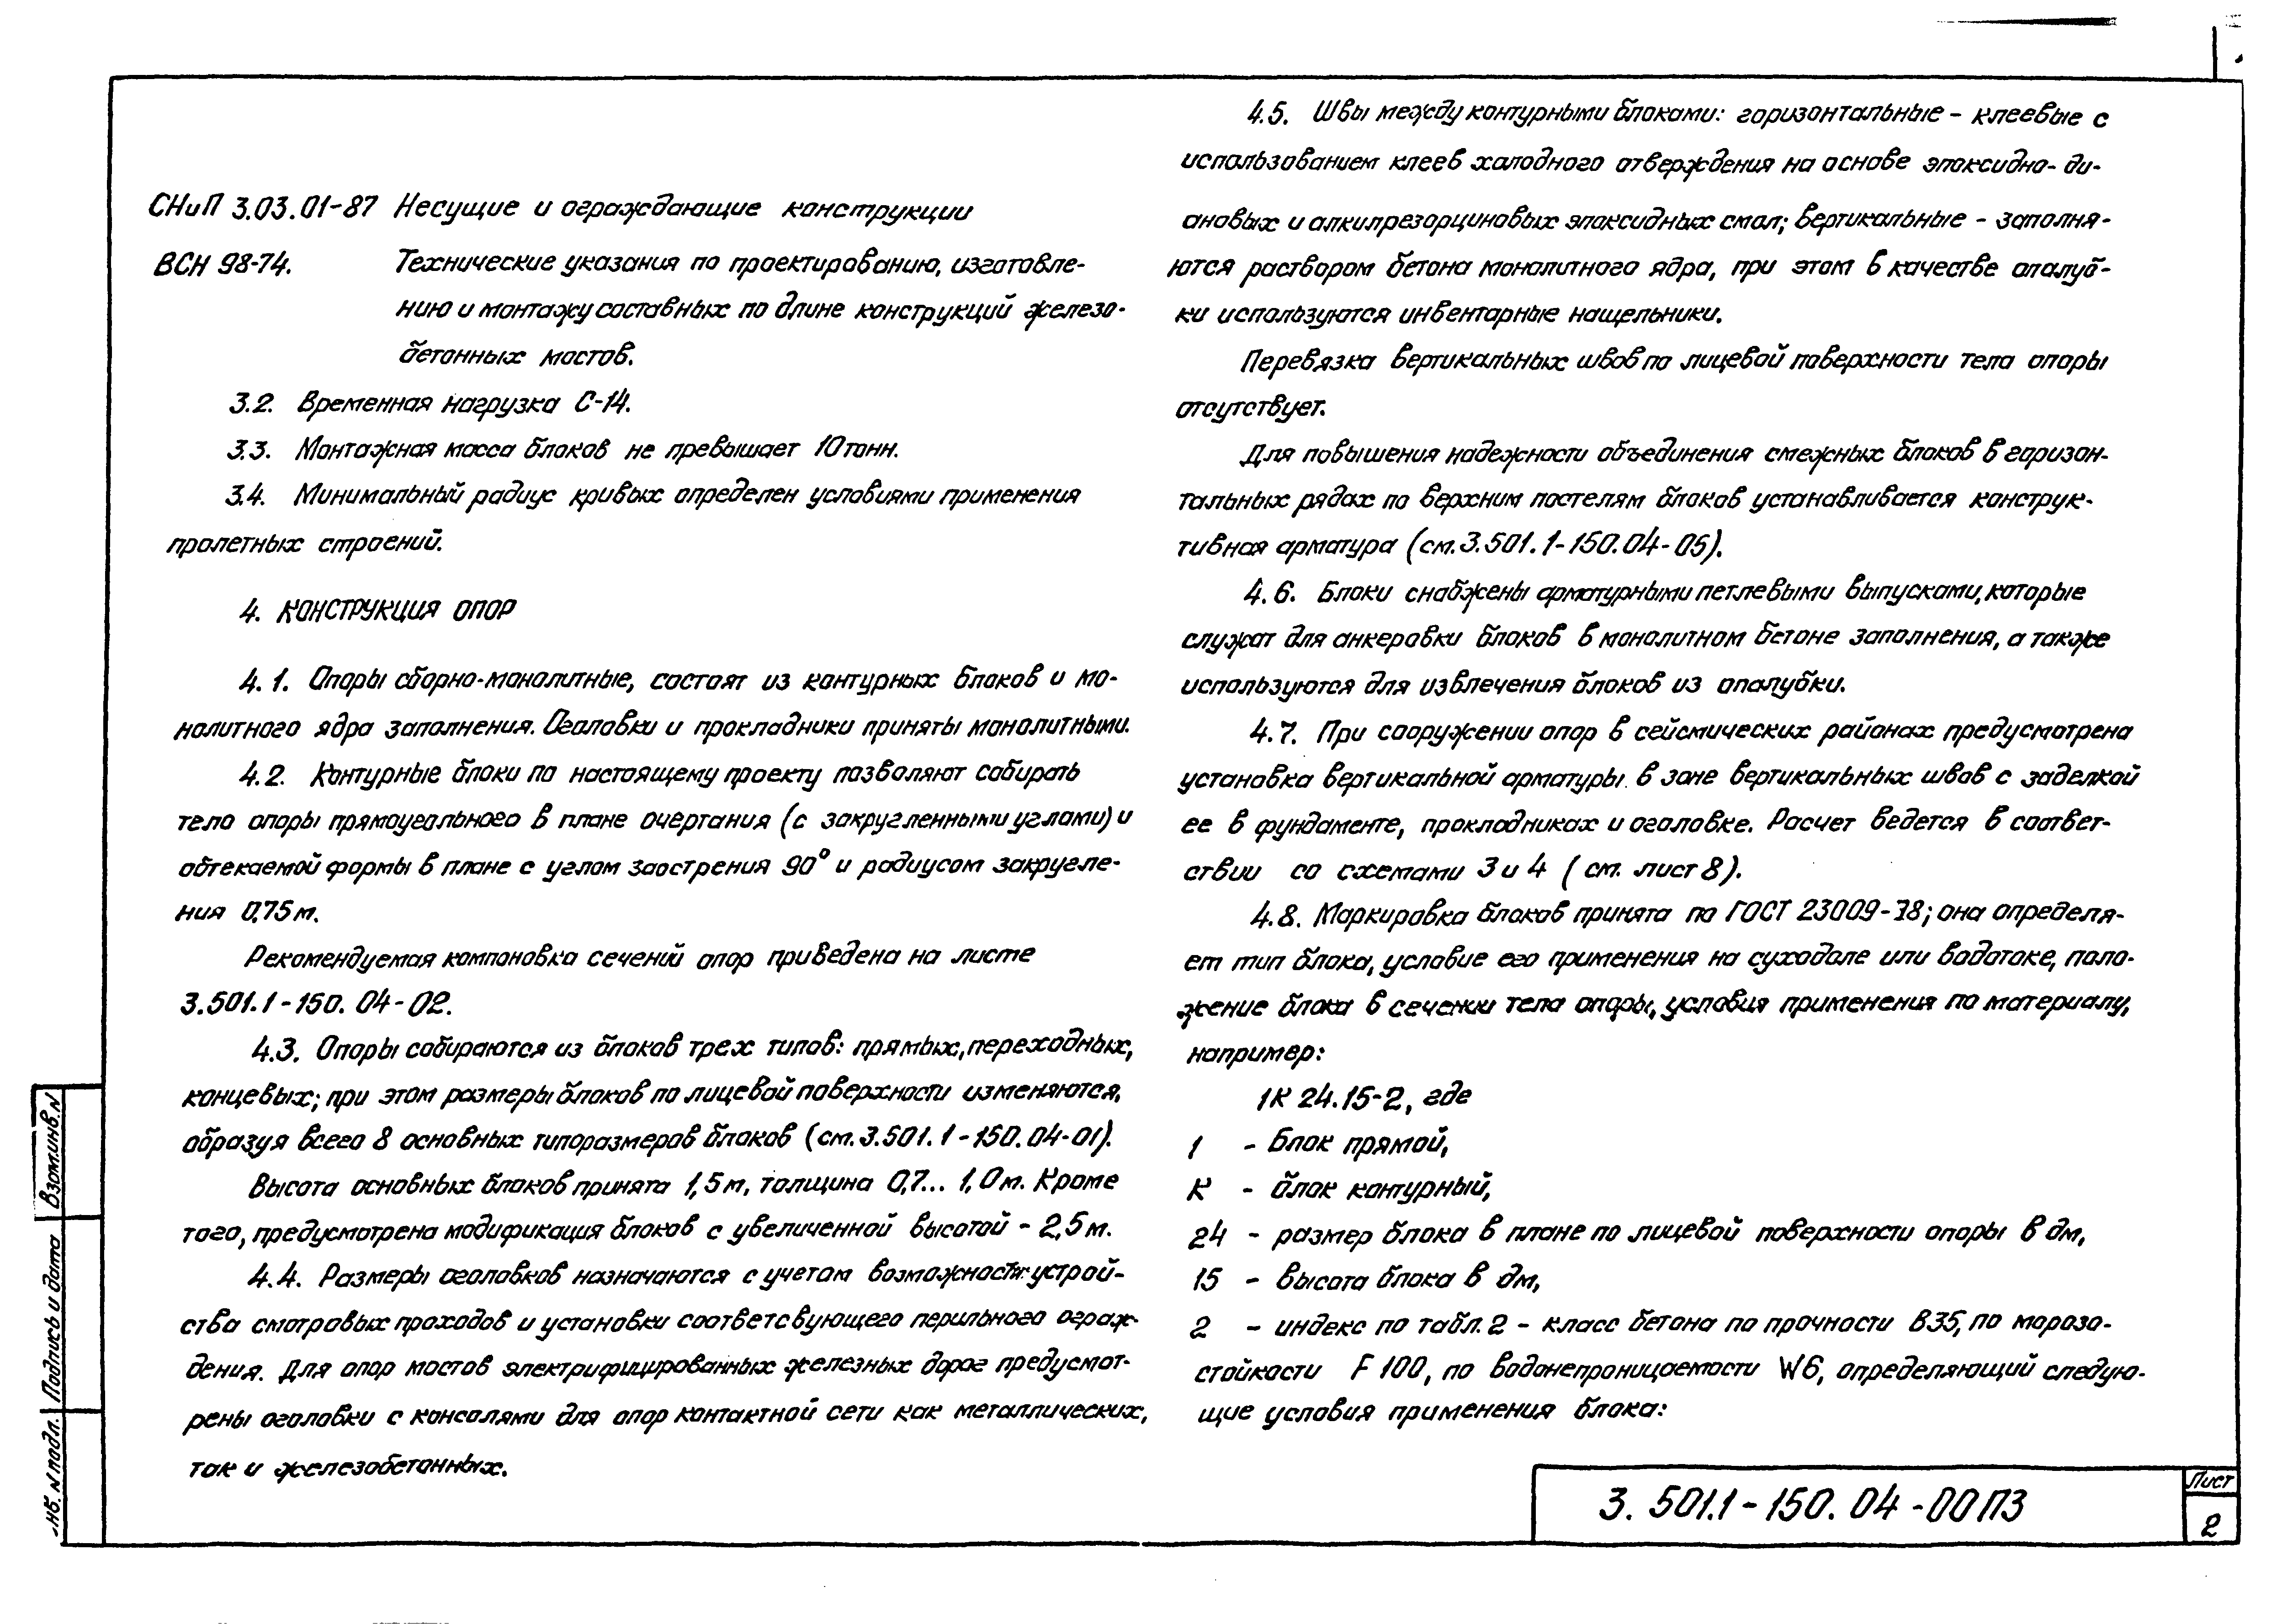 СНиП 3.03.01-87 Несущие и ограждающие конструкции
ВСН 98-74. Технические указания по проектированию, изготовле-
нию и монтажу составных по длине конструкций железо-
бетонных мостов.
3.2. Временная нагрузка С-14.
3.3. Монтажная масса блоков не превышает 10 тонн.
3.4. Минимальный радиус кривых определен условиями применения
пролетных строений.
4. КОНСТРУКЦИЯ ОПОР
4.1. Опоры сборно-монолитные, состоят из контурных блоков и мо-
нолитного ядра заполнения. Оголовки и прокладники приняты монолитными.
4.2. Контурные блоки по настоящему проекту позволяют собирать
тело опоры прямоугольного в плане очертания (с закругленными углами) и
обтекаемой формы в плане с углом заострения 90° и радиусом закругле-
ния 0,75 м.
Рекомендуемая компоновка сечений опор приведена на листе
3.501.1-150.04-02.
4.3. Опоры собираются из блоков трех типов: прямых, переходных,
концевых; при этом размеры блоков по лицевой поверхности изменяются,
образуя всего 8 основных типоразмеров блоков (см. 3.501.1-150.04-01).
Высота основных блоков принята 1,5 м, толщина 0,7... 1,0 м. Кроме
того, предусмотрена модификация блоков с увеличенной высотой - 2,5 м.
4.4. Размеры оголовков назначаются с учетом возможности устрой-
ства смотровых проходов и установки соответсвующего перильного ограж-
дения. Для опор мостов электрифицированных железных дорог предусмот-
рены оголовки с консолями для опор контактной сети как металлических,
так и железобетонных.
4.5. Швы между контурными блоками: горизонтальные - клеевые с
использованием клеев холодного отверждения на основе эпоксидно-ди-
ановых и алкилрезорциновых эпоксидных смол; вертикальные - заполня-
ются раствором бетона монолитного ядра, при этом в качестве опалуб-
ки используются инвентарные нащельники.
Перевязка вертикальных швов по лицевой поверхности тела опоры
отсутствует.
Для повышения надежности объединения смежных блоков в горизон-
тальных рядах по верхним постелям блоков устанавливается конструк-
тивная арматура (см. 3.501.1-150.04-05).
4.6. Блоки снабжены арматурными петлевыми выпусками, которые
служат для анкеровки блоков в монолитном бетоне заполнения, а также
используются для извлечения блоков из опалубки.
4.7. При сооружении опор в сейсмических районах предусмотрена
установка вертикальной арматуры в зоне вертикальных швов с заделкой
ее в фундаменте, прокладниках и оголовке. Расчет ведется в соответ-
ствии со схемами 3 и 4 (см. лист 8).
4.8. Маркировка блоков принята по ГОСТ 23009-78; она определя-
ет тип блока, условие его применения на суходоле или водотоке, поло-
жение блока в сечении тела опоры, условия применения по материалу,
например:
1К 24.15-2, где
1 - Блок прямой,
К - блок контурный,
24 - размер блока в плане по лицевой поверхности опоры в дм,
15 - высота блока в дм,
2 - индекс по табл. 2 - класс бетона по прочности В35, по морозо-
стойкости F100, по водонепроницаемости W6, определяющий следую-
щие условия применения блока:
3.501.1-150.04-00ПЗ
Лист
2
Взам.инв.N
Подпись и дата
Инв. N подл.